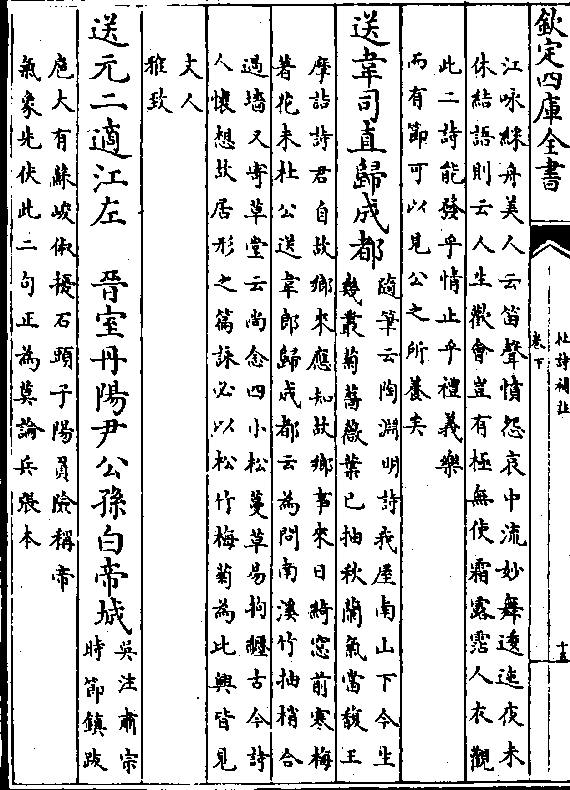 欽定四庫全書
杜詩補註
卷下
十五
江咏綵舟美人云笛聲憤怨哀中流妙舞逶迤夜未
休結語則云人生歡會豈有極無使霜露霑人衣觀
此二詩能發乎情止乎禮義樂
而有節可以見公之所養矣
送韋司直歸成都
隨筆云陶淵明詩我屋南山下今生
幾叢菊薔薇葉已抽秋蘭氣當馥王
摩詰詩君自故鄉來應知故鄉事來日綺窓前寒梅
著花未杜公送韋郎歸成都云為問南溪竹抽梢合
過墻又寄草堂云尚念四小松蔓草易拘纒古今詩
人懐想故居形之篇詠必以松竹梅菊為比興皆見
丈人
雅致
送元二適江左 晉室丹陽尹公孫白帝城
吳注肅宗
時節鎮跋
扈大有蘇峻俶擾石頭子陽負險稱帝
氣象先伏此二句正為莫論兵張本